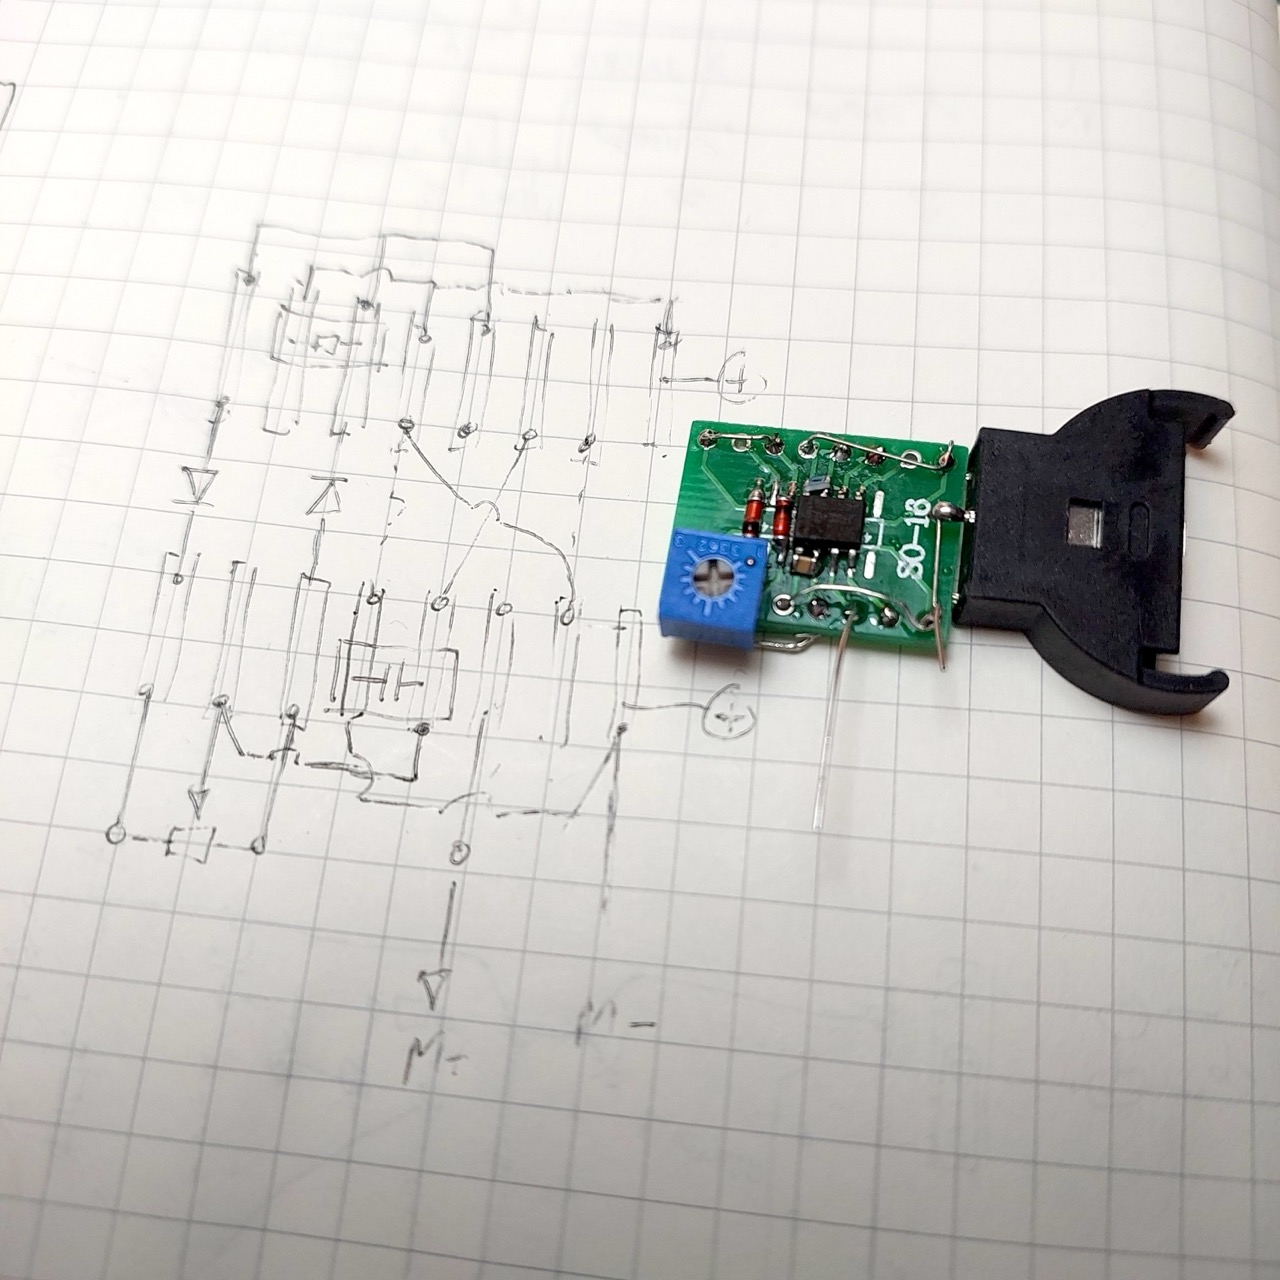 +
SO-18
3362
+
M-
M-